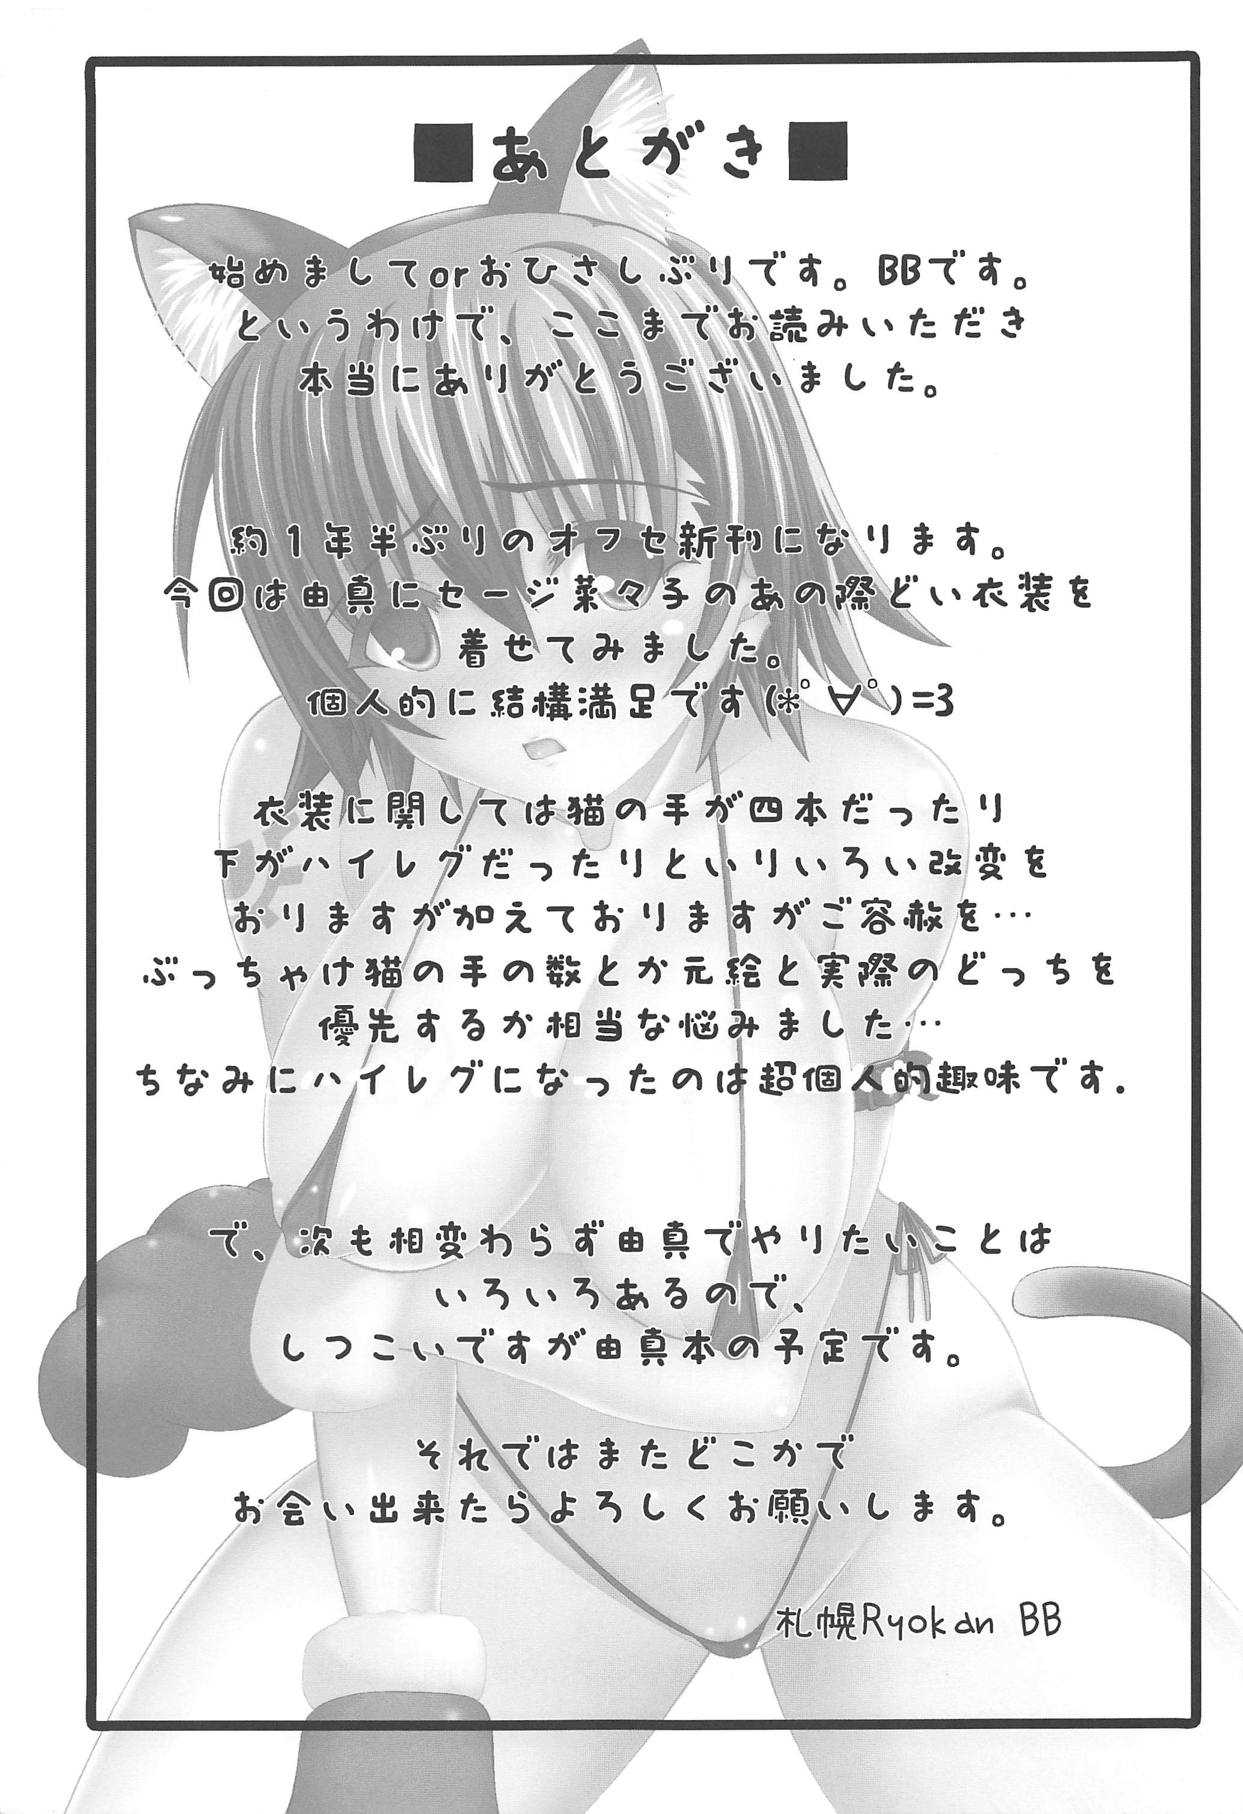 ■あとがき■
始めましてorおひさしぶりです。BBです。
というわけで、ここまでお読みいただき
本当にありがとうございました。
約1年半ぶりのオフセ新刊になります。
今回は由真にセージ菜々子のあの際どい衣装を
着せてみました。
個人的に結構満足です(*ﾟ∀ﾟ)=3
衣装に関しては猫の手が四本だったり
下がハイレグだったりといりいろい改変を
おりますが加えておりますがご容赦を…
ぶっちゃけ猫の手の数とか元絵と実際のどっちを
優先するか相当な悩みました…
ちなみにハイレグになったのは超個人的趣味です.
で、次も相変わらず由真でやりたいことは
いろいろあるので、
しつこいですが由真本の予定です。
それではまたどこかで
お会い出来たらよろしくお願いします。
札幌Ryokan BB